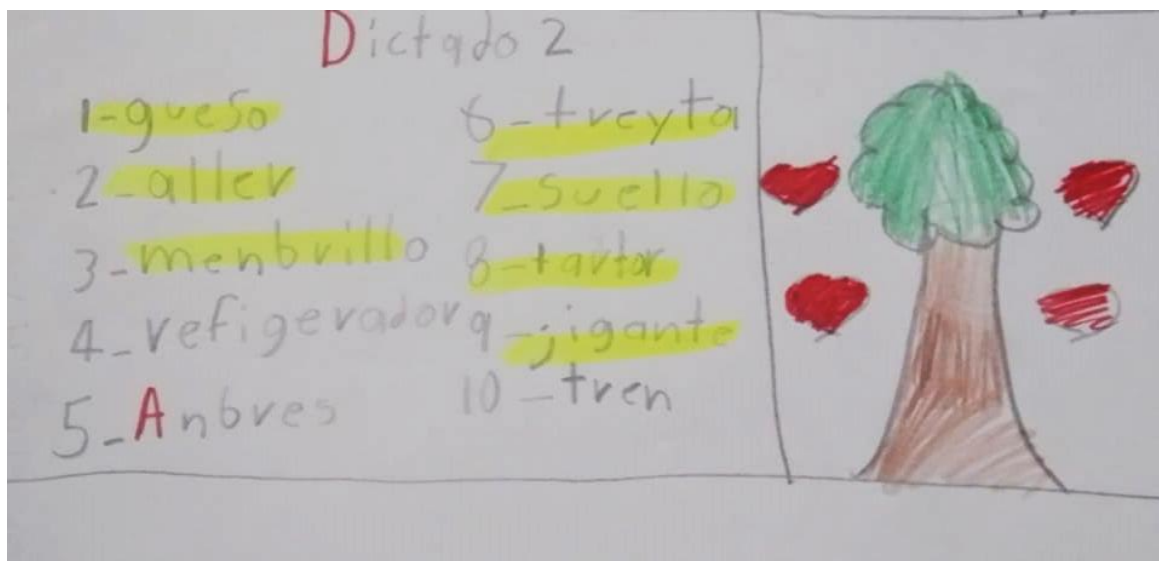 Dictado 2
1-gueso
2-aller
3-menbrillo
4-refigerador
5-Anbres
6-treyta
7-suello
8-tartor
9-jigante
10-tren